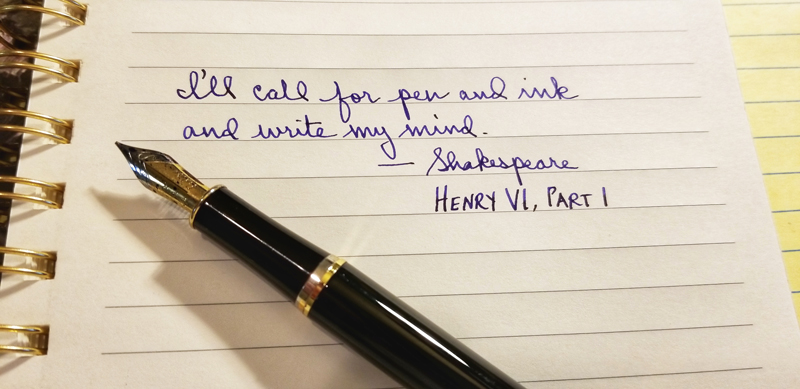 I'll call for pen and ink
and write my mind.
— Shakespeare
HENRY VI, PART I